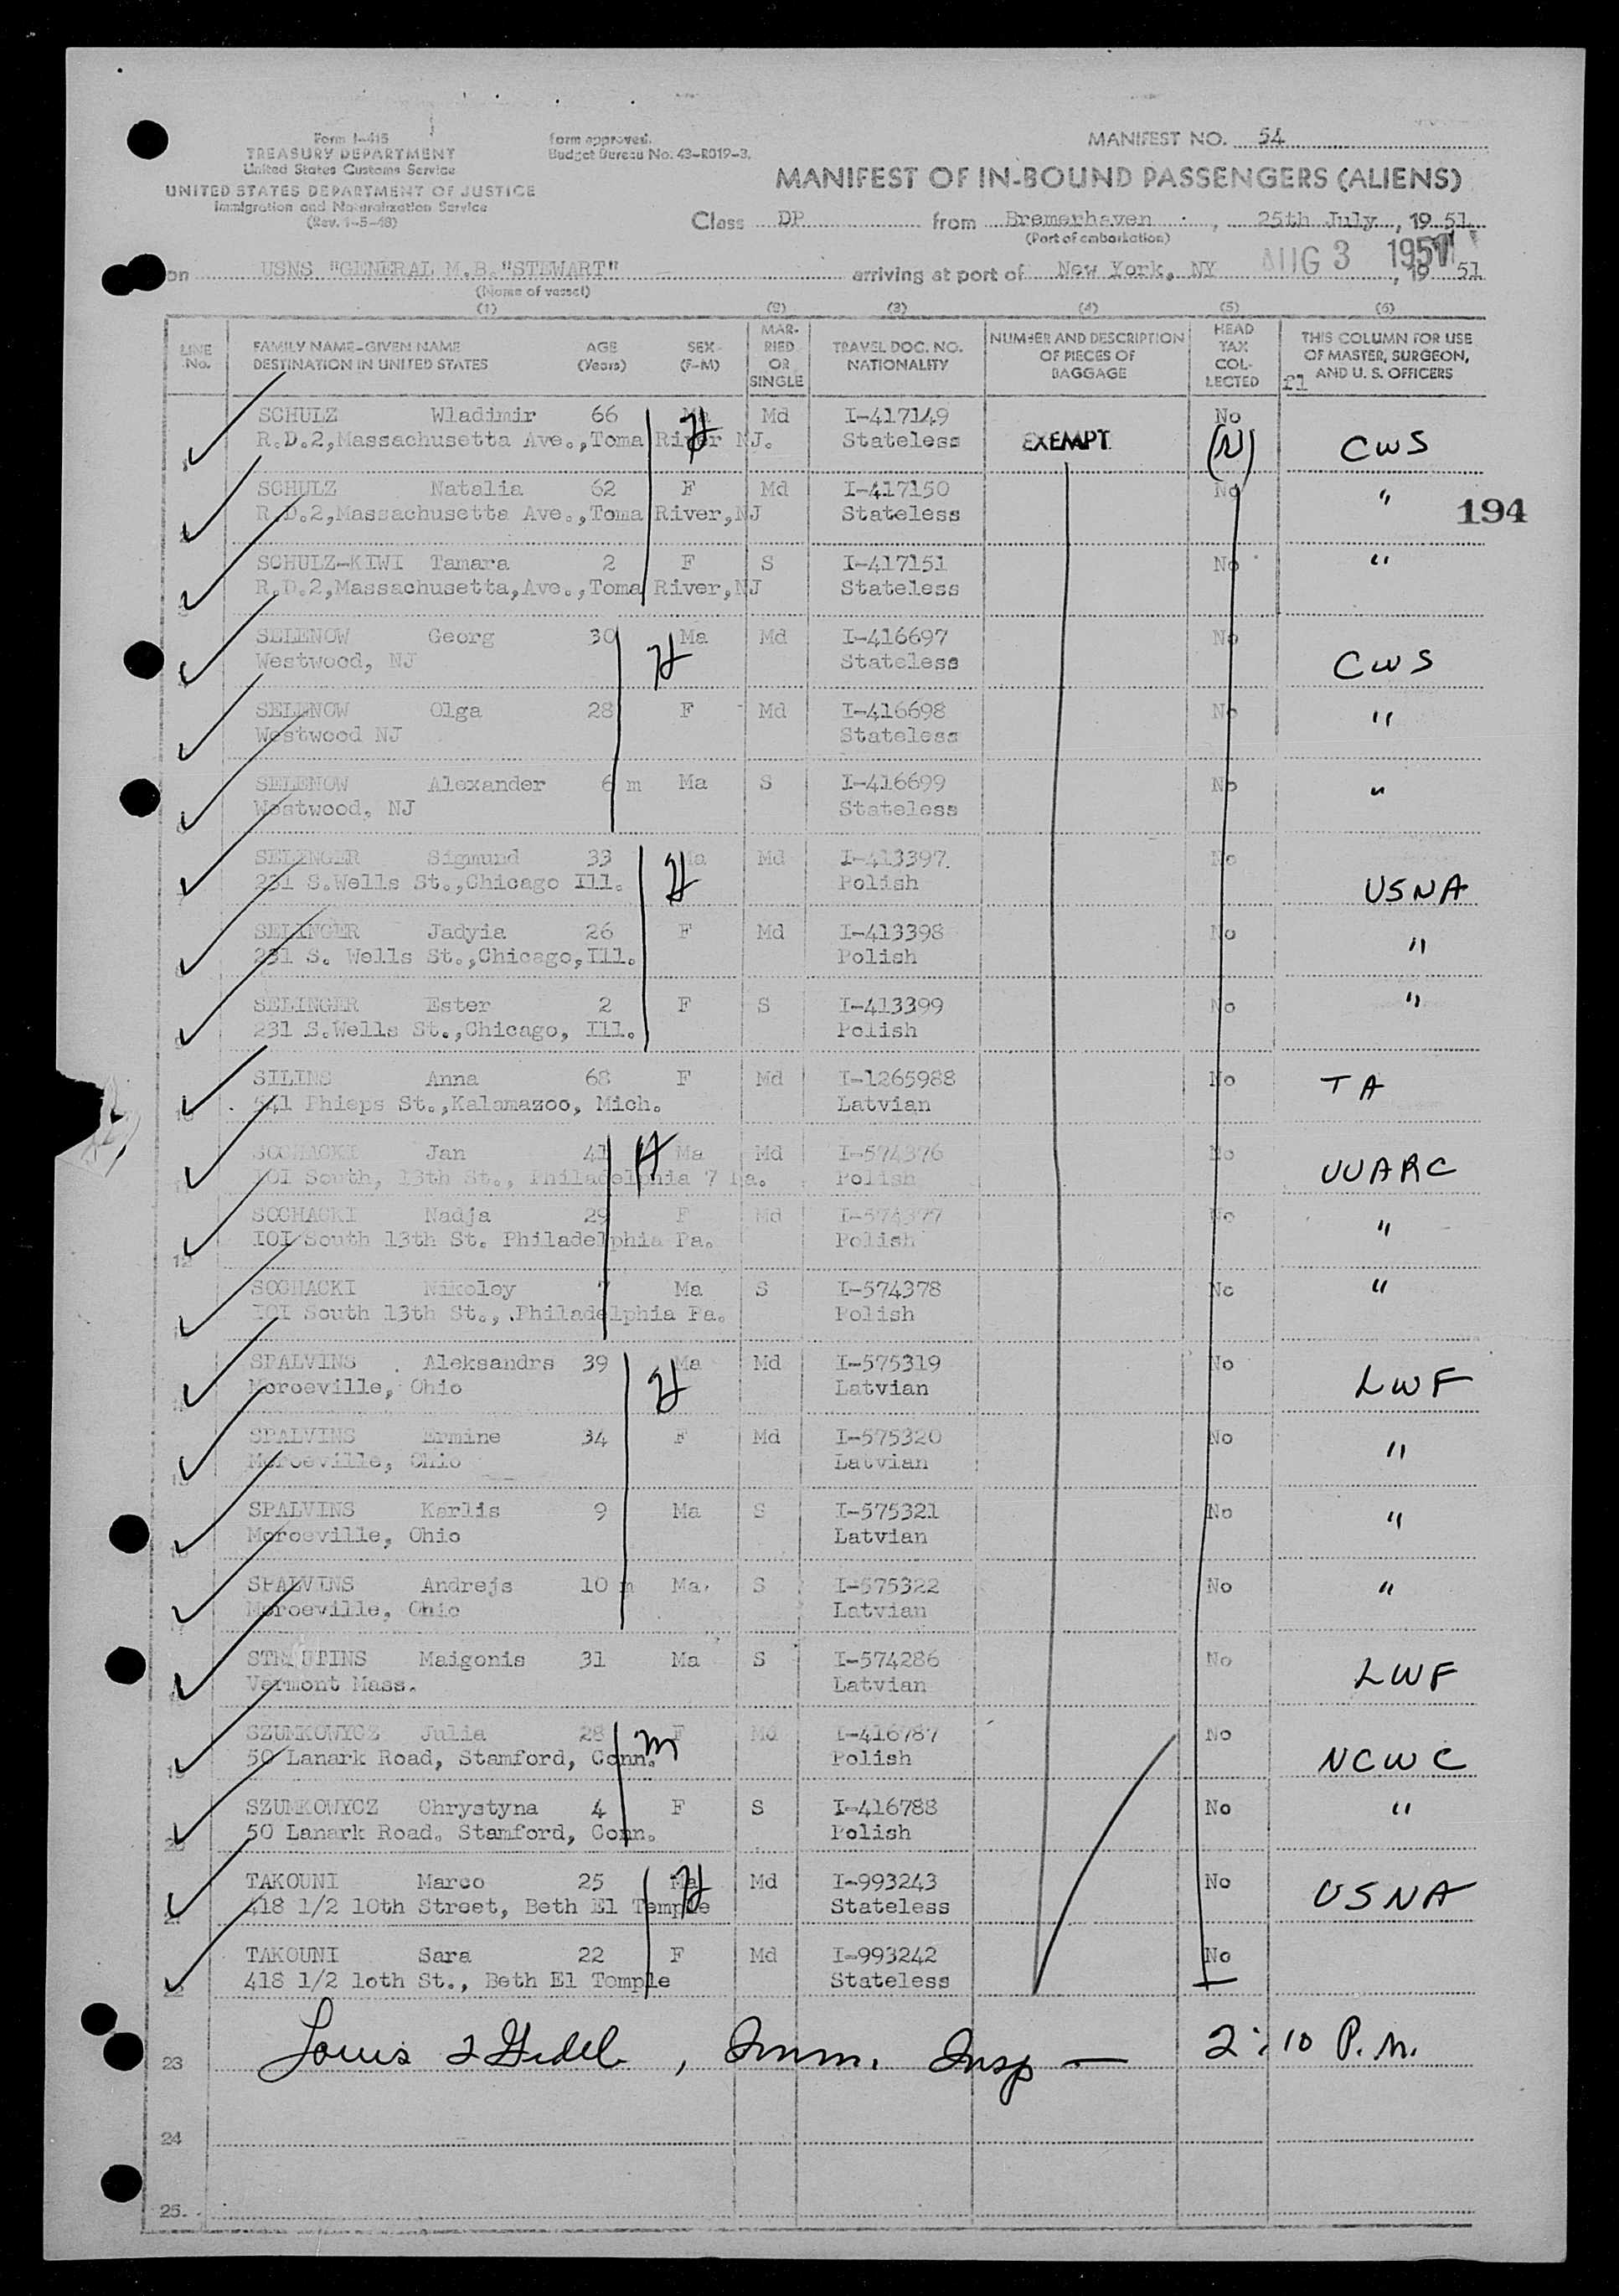 Form I-415
TREASURY DEPARTMENT
United States Customs Service
UNITED STATES DEPARTMENT OF JUSTICE
Immigration and Naturalization Service
(Rev. 1-5-48)
Form approved.
Budget Bureau No. 43-R019-3.
MANIFEST NO. 54
MANIFEST OF IN-BOUND PASSENGERS (ALIENS)
Class DP from Bremerhaven, 25th July, 19 51
(Port of embarkation)
on USNS "GENERAL M.B."STEWART" arriving at port of New York, NY AUG 3 1951, 19 51
(Name of vessel)
(1) (2) (3) (4) (5) (6)
LINE No. FAMILY NAME-GIVEN NAME DESTINATION IN UNITED STATES AGE (Years) SEX (F-M) MARRIED OR SINGLE TRAVEL DOC. NO. NATIONALITY NUMBER AND DESCRIPTION OF PIECES OF BAGGAGE HEAD TAX COLLECTED THIS COLUMN FOR USE OF MASTER, SURGEON, AND U. S. OFFICERS
fl
SCHULZ Wladimir 66 Ma Md I-417149 No
R.D.2,Massachusetta Ave.,Toma River NJ. Stateless EXEMPT (N) CWS
SCHULZ Natalia 62 F Md I-417150 No "
R.D.2,Massachusetta Ave.,Toma River,NJ Stateless 194
SCHULZ-KIWI Tamara 2 F S I-417151 No "
R.D.2,Massachusetta,Ave.,Toma River,NJ Stateless
SELENOW Georg 30 Ma Md I-416697 No
Westwood, NJ Stateless CWS
SELENOW Olga 28 F Md I-416698 No "
Westwood NJ Stateless
SELENOW Alexander 6 m Ma S I-416699 No "
Westwood, NJ Stateless
SELINGER Sigmund 33 Ma Md I-413397. No
231 S.Wells St.,Chicago Ill. Polish USNA
SELINGER Jadyia 26 F Md I-413398 No "
231 S. Wells St.,Chicago,Ill. Polish
SELINGER Ester 2 F S I-413399 No "
231 S.Wells St.,Chicago, Ill. Polish
SILINS Anna 68 F Md I-1265988 No TA
541 Phieps St.,Kalamazoo, Mich. Latvian
SOCHACKI Jan 41 Ma Md I-574376 No
IOI South, 13th St., Philadelphia 7 Pa. Polish UUARC
SOCHACKI Nadja 29 F Md I-574377 No "
IOI South 13th St. Philadelphia Pa. Polish
12
SOCHACKI Nikoley 7 Ma S I-574378 No "
IOI South 13th St., .Philadelphia Pa. Polish
SPALVINS Aleksandrs 39 Ma Md I-575319 No
Moroeville, Ohio Latvian LWF
SPALVINS Ermine 34 F Md I-575320 No "
Moroeville, Ohio Latvian
SPALVINS Karlis 9 Ma S I-575321 No "
Moroeville, Ohio Latvian
SPALVINS Andrejs 10 m Ma. S I-575322 No "
Moroeville, Ohio Latvian
Maigonis 31 Ma S I-574286 No
Vermont Mass. Latvian LWF
SZUMKOWYCZ Julia 28 F Md I-416787 No
50 Lanark Road, Stamford, Conn. Polish NCWC
SZUMKOWYCZ Chrystyna 4 F S I-416788 No "
50 Lanark Road. Stamford, Conn. Polish
TAKOUNI Marco 25 Ma Md I-993243 No
418 1/2 10th Street, Beth El Temple Stateless USNA
TAKOUNI Sara 22 F Md I-993242 No
418 1/2 1oth St., Beth El Temple Stateless
23 Louis , Imm. Insp — 2:10 P.M.
24
25.